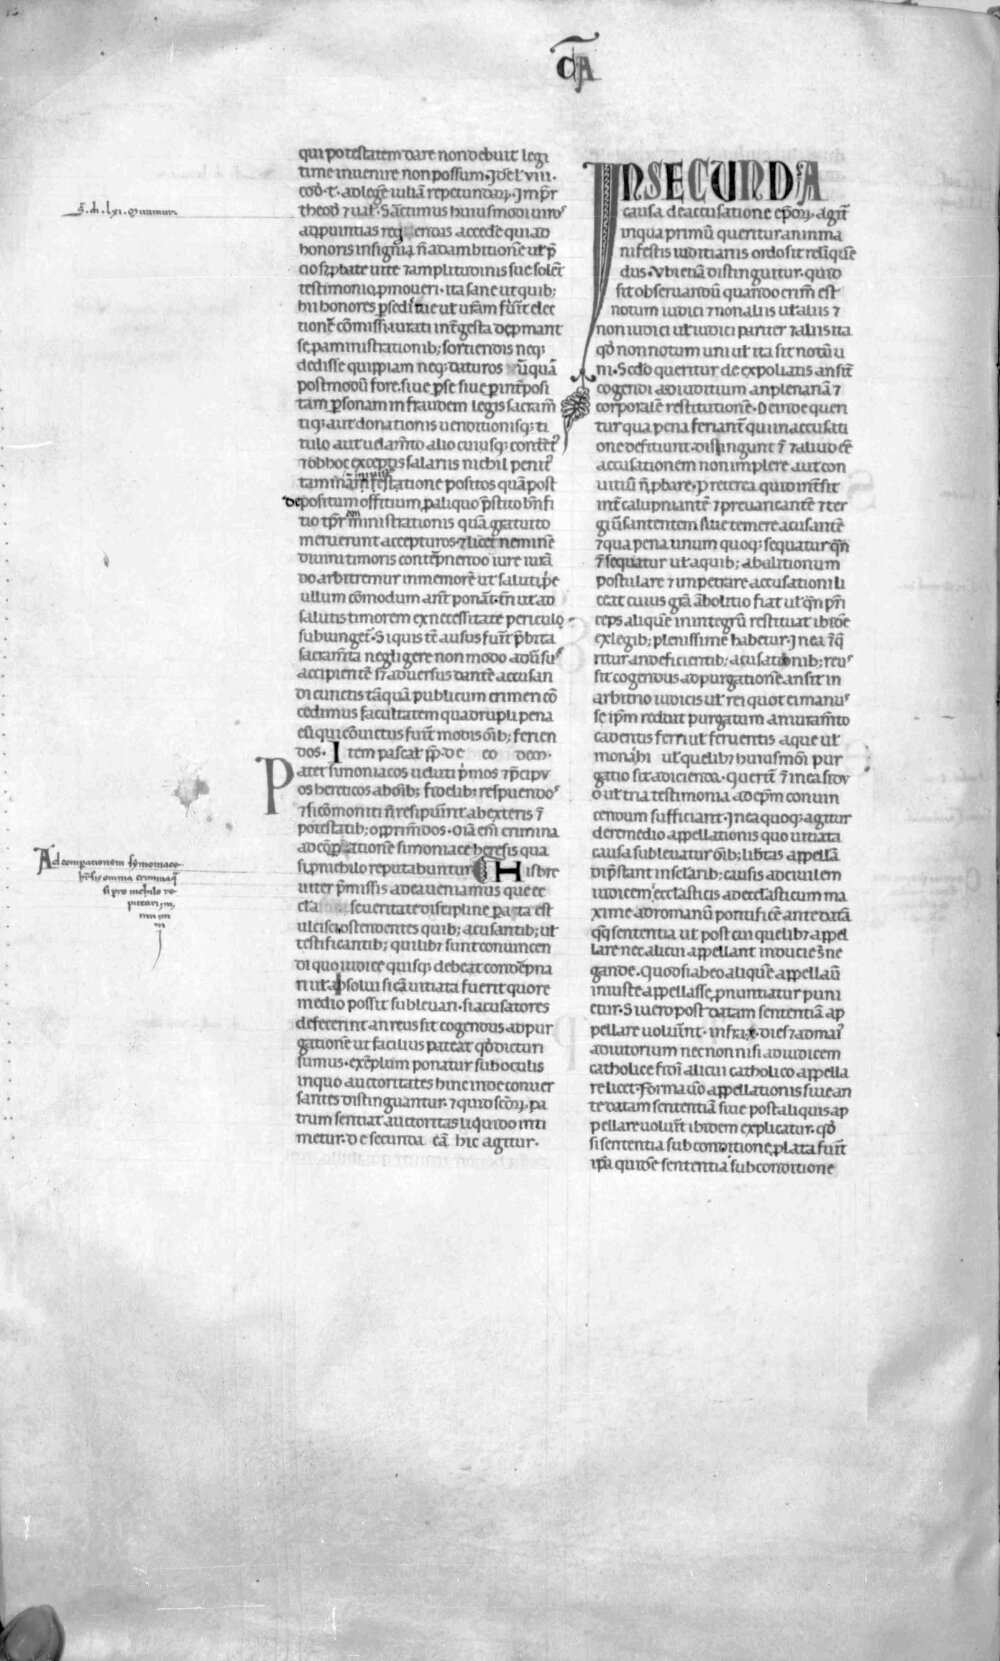 CĀ
qui potestatem dare non debuit legi
time inuenire non possum. Idē l. viii.
cod. t. ad legē iuliā repetundaꝝ. Impr̄
theod ⁊ ual. Sanctimus huiusmodi uiros
ad puintias regendas accedē qui ad
honoris insignia ñ ad ambitionē ul p̄
cio sꝫ pbate uite ⁊ amplitudinis sue solēt
testimonio ꝓmoueri. ita sane ut quibꝫ
hii honores ꝑ sedis tue ul urām fuīt elec
tionē cōmissi. iurati int̄ gesta depmant
se ꝓ aministrationibꝫ sortiendis neqꝫ
dedisse quippiam neqꝫ daturos unquā
postmodū fore. siue ꝑ se siue ꝑ int̄posi
tam ꝑsonam in fraudem legis sacramī
tiqꝫ aut donationis uenditionisqꝫ ti
tulo aut uelamīto alio cuiusqꝫ contēt
⁊ ob hoc exceptis salariis nichil penit
tam in āministratione positos quā post
depositum offitium ꝓ aliquo p̄stito bn̄fi
tio tp̄r āministrationis quā gratuito
meruerunt accepturos. ⁊ licet neminē
diuini timoris contēpnendo iure iurā
do arbitremur inmemorē ut saluti ꝓpe
ullum cōmodum ant̄ ponāt. tn̄ ut ad
salutis timorem ex necessitate periculo
subiungēt. Si quis tē ausus fuīt p̄bita
sacramīta negligere non modo aduūsus
accipientē sꝫ aduersus dantē accusan
di cunctis tāquā publicum crimen cō
cedimus facultatem quadrupli pena
eū qui cōuictus fuīt modis oīb; ferien
dos. Item pascal pp̄. de eo dem.
Patet simoniacos ueluti p̄mos ⁊ p̄cipu
os hereticos ab oīb; fidelib; respuendos
⁊ si cōmoniti ñ resipuīnt ab exteris ē
potestatib; opp̄rimdos. Oīa eīm crimina
ad cōꝑationē simoniace heresis qua
si ꝓ nichilo reputabuntur. His bre
uiter p̄missis ad ea ueniamus que ec
cla seueritate discipline parata est
ulcisci. ostendentes quib; acusantib; ul
testificantib; quilibꝫ sunt conuincen
di quo iudice quisqꝫ debeat condēpna
ri ul absolui si cā uitiata fuerit quo re
medio possit subleuari. si acusatores
defecerint an reus sit cogendus ad pur
gationē ut facilius pateat qd̄ dicturi
sumus. exēplum ponatur sub oculis
in quo auctoritates hinc inde conuer
santes distinguantur. ⁊ quid scd̄m pa
trum sentiat auctoritas liquido inti
metur. De secunda cā hic agitur.
IN SECUNDA
causa de accusatione ep̄oꝝ agit
in qua primū queritur an in ma
nifestis iuditiariis ordo sit reliquē
dus. Vbi etiā distinguitur. quid
sit obseruandū quando crim̄ est
notum iudici ⁊ non aliis ul aliis ⁊
non iudici ul iudici pariter ⁊ aliis ita
qd̄ non notum uni ul ita sit notū u
ni. Scdo queritur de expoliatis an sint
cogendi ad iuditium an plenariā ⁊
corporalē restitutionē. Deinde queri
tur qua pena feriant̄ qui in accusati
one defitiunt. distingunt̄ ē ⁊ aliud eē
accusationem non implere aut con
uitiū ñ pbare. p̄terea quid int̄sit
int̄ calupniantē ⁊ preuaricantē ⁊ ter
giūsantentem siue temere acusantē
⁊ qua pena unum quoqꝫ sequatur qn̄
ē sequatur ul a quibꝫ abolitionum
postulare ⁊ impetrare accusationi li
ceat cuius grā abolitio fiat ul qn̄ pri
ceps aliquē in integrū restituat ibidē
ex legibꝫ plenissime habetur. In ea ē q̄
ritur an deficientibꝫ acusatoribꝫ reus
sit cogendus ad purgationē an sit in
arbitrio iudicis ul rei quot ei manus
se ip̄m reddit purgatum an iuramīto
cadentis ferri ul feruentis aque ul
monachi ul quelibꝫ huiusmōi pur
gatio sit adicienda. Querit̄ ē in ca si du
o ul tria testimonia ad ep̄m conuin
cendum sufficiant. In ea quoqꝫ agitur
de remedio appellationis quo uitiata
causa subleuatur oībꝫ libtas appellā
di p̄stant in selaribꝫ causis ad ciuilem
iudicem. ecclasticis ad ecclasticum ma
xime ad romanū pontificē ante datā
qq̄ sententia ul post cui quelibꝫ appel
lare nec alicui appellant inducie sē ne
gande. quod si ab eo aliquē appellaū
iniuste appellasse ꝓnuntiatur puni
etur. Si uero post datam sententiā ap
pellare uoluīnt. infra x. dies ⁊ ad mai
ad iutorium nec non nisi ad iudicem
catholice fidi alicui catholico appella
re licet. Forma uō appellationis siue an
te datam sententiā siue post aliquis ap
pellare uoluīt ibidem explicatur. qd̄
si sententia sub conditione ꝓlata fuīt
ip̄a quidē sententia sub conditione
S. di. lxi.
Ad comparationem symoniace
heresis omnia crimina q̄
si pro nichilo re
putari